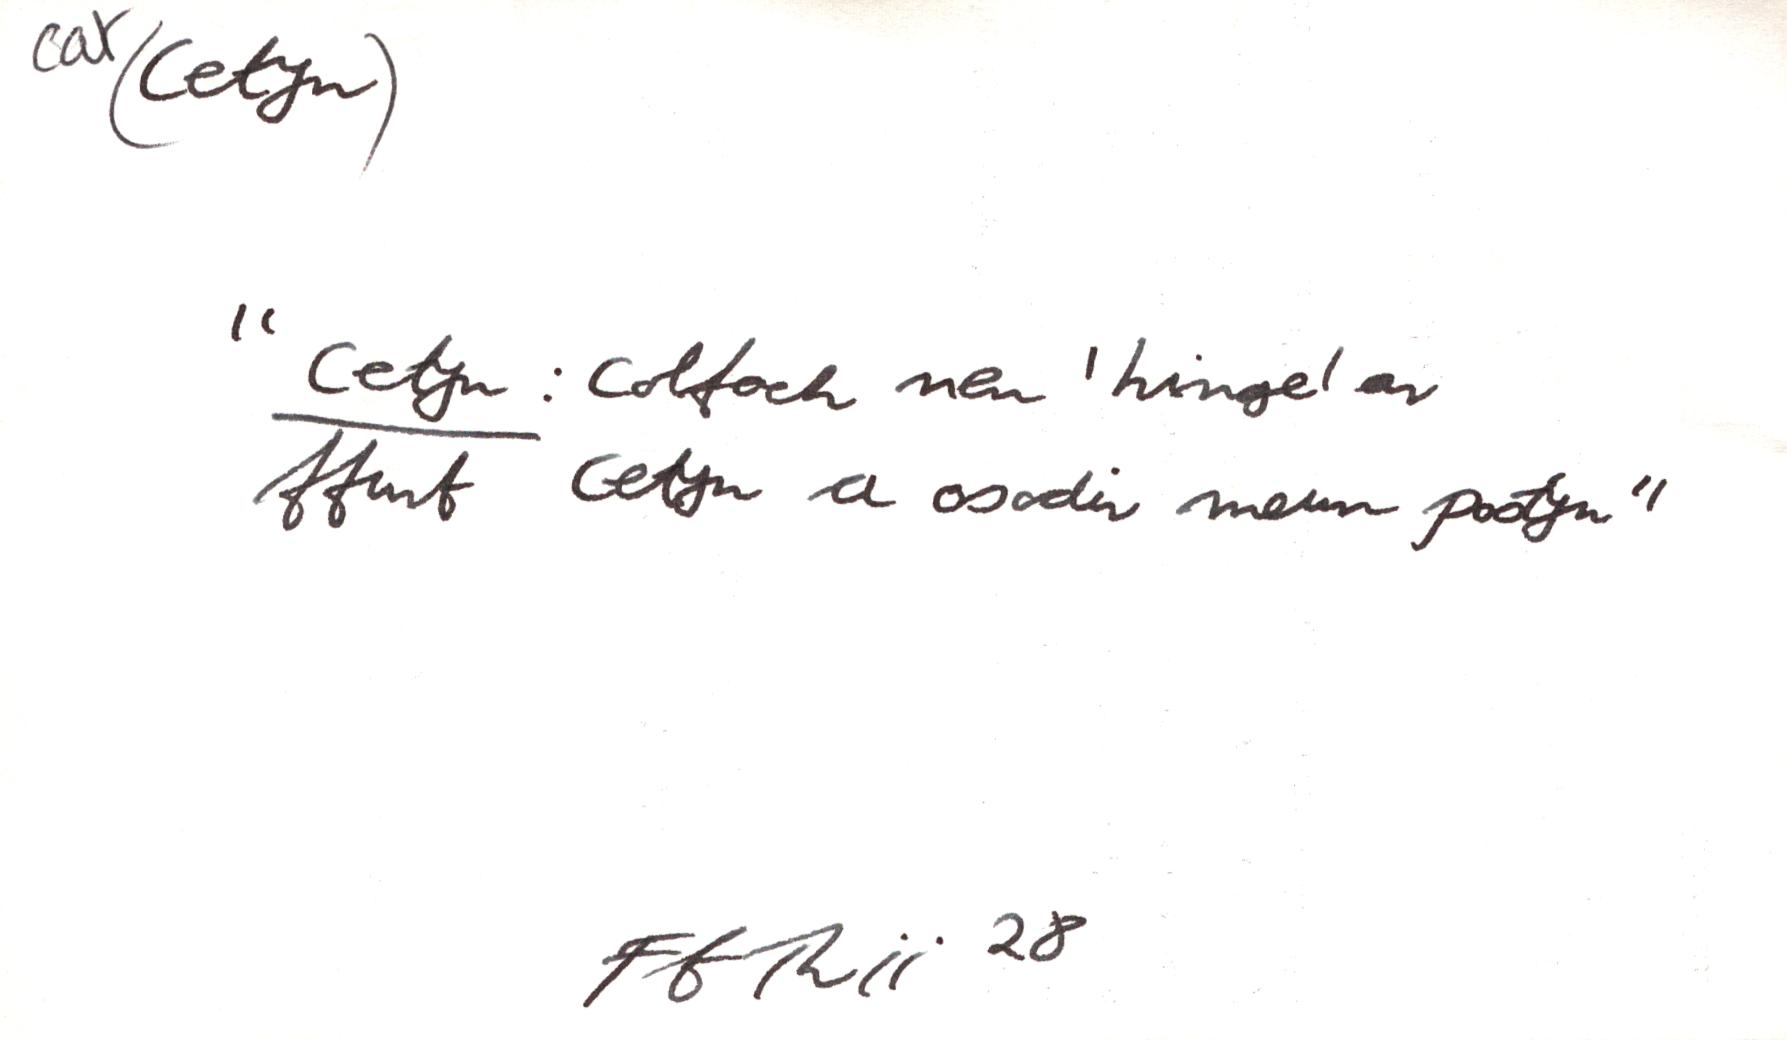 cat (Cetyn)
" Cetyn : Colfach neu 'hinge' ar
ffurf cetyn a osodir mewn postyn "
Ff Th ii 28